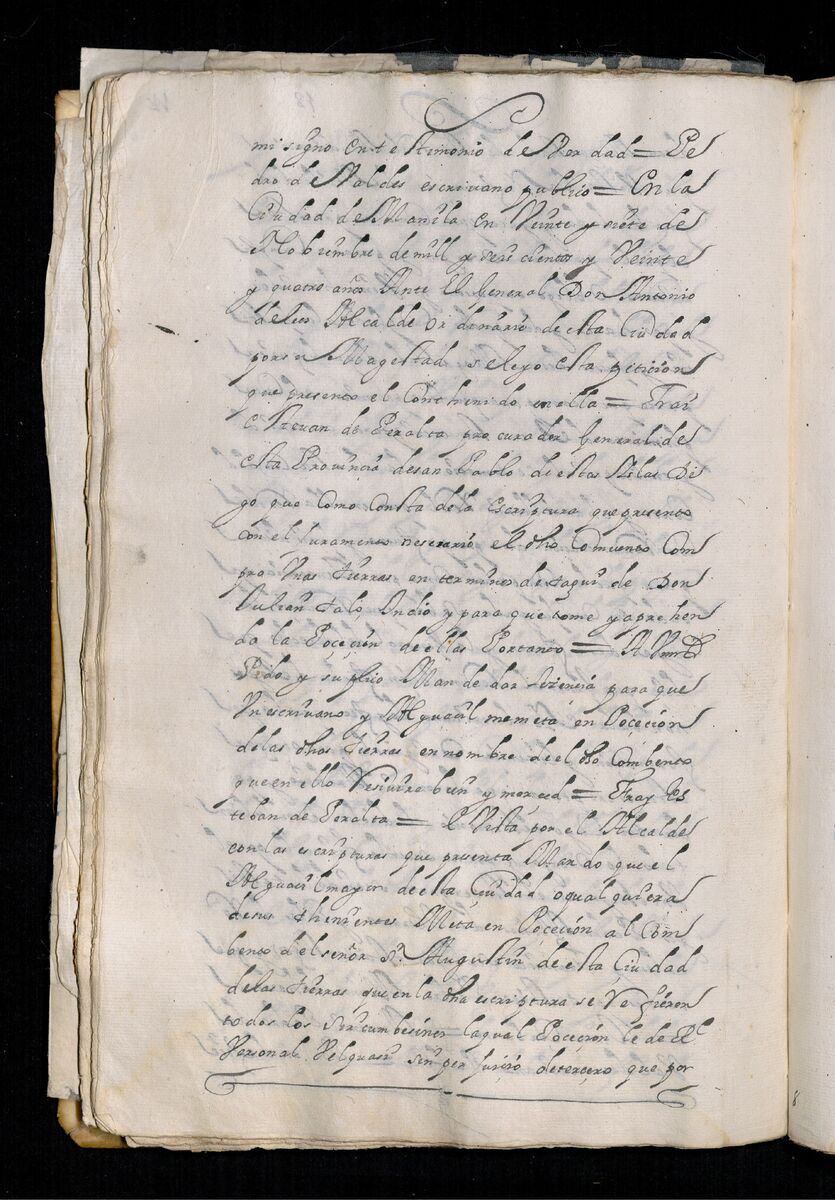 mi signo en testimonio de Verdad = Pe
dro de Valdes escrivano publico = En la
Ciudad de Manila en Veinte y siete de
Nobiembre de mill y seis cientos y Veinte
y quatro años Ante El General Don Antonio
de leos Alcalde ordinario de esta Ciudad
por su Magestad se leyo esta peticion
que presento el Conthenido en ella = Frai
Estevan de Peralta procurador General de
esta Provincia de san Pablo de estas Yslas Di
go que como Consta de la escriptura que presento
con el Juramento nesesario el dho Combento Com
pro Unas tierras en termino de taguí de Don
Julian talo, Indio y para que tome y aprehen
da la Poçeçion de ellas Portanto = A Vmd
Pido y suplico Mande dar lizencia para que
Un escrivano y Alguasil me meta en Poceción
de las dhas tierras en nombre de el dho Combento
que en ello Resivire bien y merced = Fray Es
teban de Peralta = E Vista por el Alcalde
con las escripturas que presenta Mando que el
Alguasil mayor de esta Ciudad o qual quiera
de sus thenientes Meta en Poceción al Com
bento de el señor Sn. Augustin de esta Ciudad
de las tierras que en la dha escriptura se Refieren
todos los Circumbesinos la qual Poceción le de Rl
Personal Vel quasi sin perjuiçio de terçero que por
8